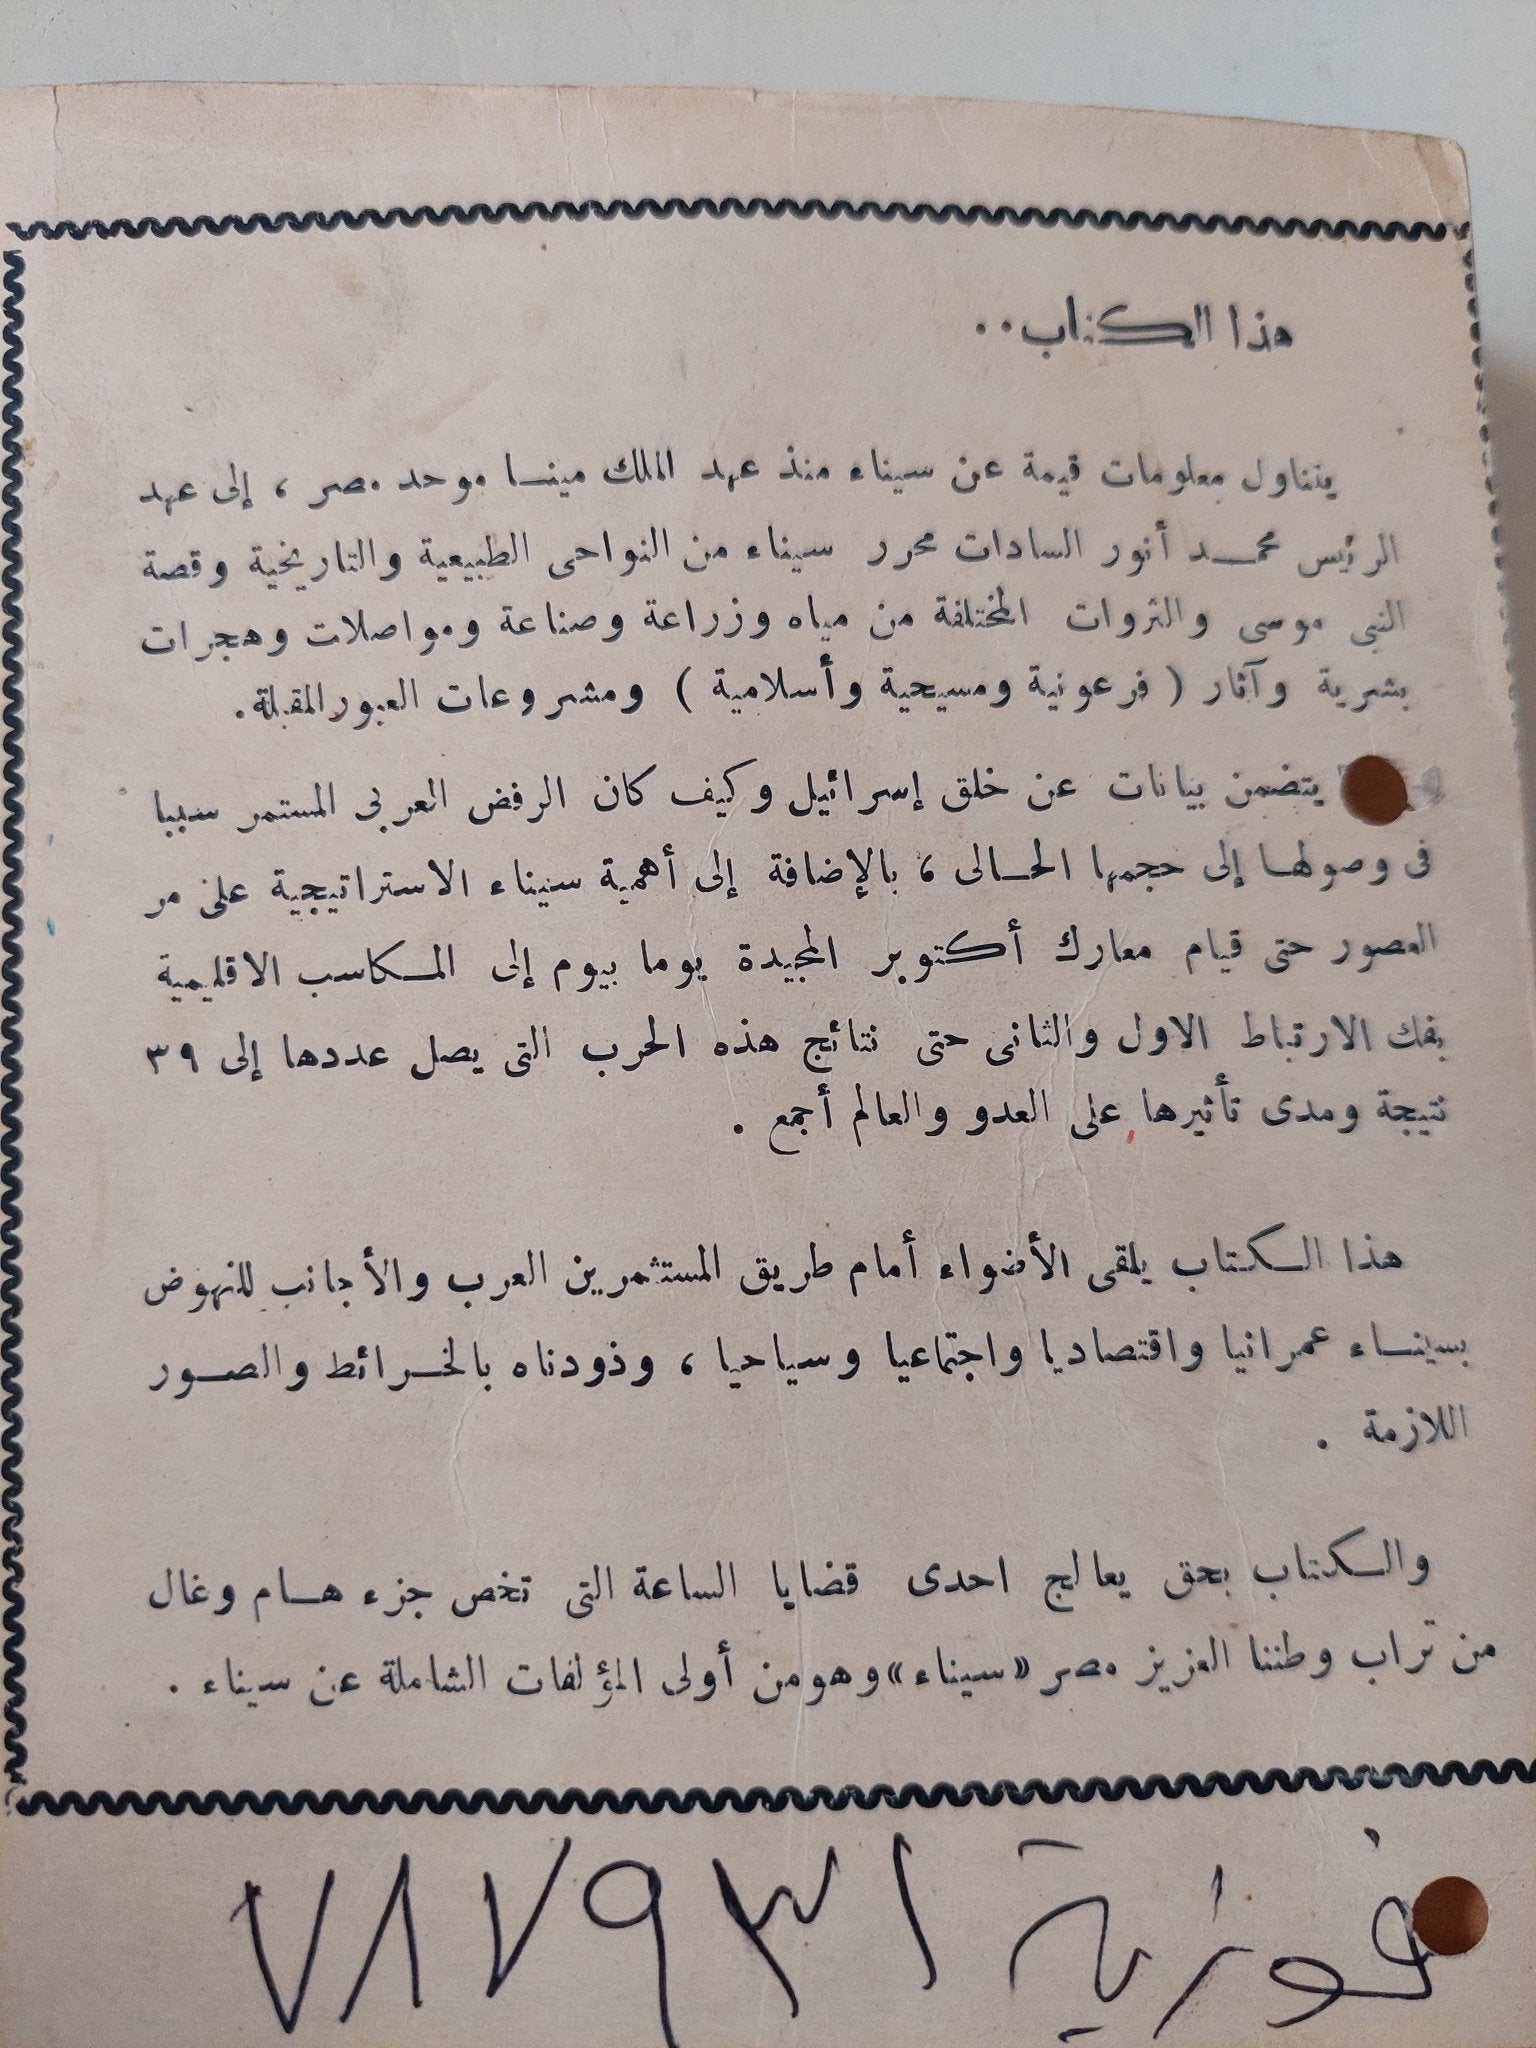 هذا الكتاب..
يتناول معلومات قيمة عن سيناء منذ عهد الملك مينا موحد مصر ، إلى عهد
الرئيس محمد أنور السادات محرر سيناء من النواحى الطبيعية والتاريخية وقصة
النبى موسى والثروات المختلفة من مياه وزراعة وصناعة ومواصلات وهجرات
بشرية وآثار ( فرعونية ومسيحية وأسلامية ) ومشروعات العبور المقبلة.
يتضمن بيانات عن خلق إسرائيل وكيف كان الرفض العربى المستمر سببا
فى وصولها إلى حجمها الحالى ، بالإضافة إلى أهمية سيناء الاستراتيجية على مر
العصور حتى قيام معارك أكتوبر المجيدة يوما بيوم إلى المكاسب الاقليمية
بفك الارتباط الاول والثانى حتى نتائج هذه الحرب التى يصل عددها إلى ٣٩
نتيجة ومدى تأثيرها على العدو والعالم أجمع .
هذا الكتاب يلقى الأضواء أمام طريق المستثمرين العرب والأجانب للنهوض
بسيناء عمرانيا واقتصاديا واجتماعيا وسياحيا ، وذودناه بالخرائط والصور
اللازمة .
والكتاب بحق يعالج احدى قضايا الساعة التى تخص جزء هام وغال
من تراب وطننا العزيز مصر «سيناء» وهو من أولى المؤلفات الشاملة عن سيناء .
فوزية ٧٨٧٩٣١